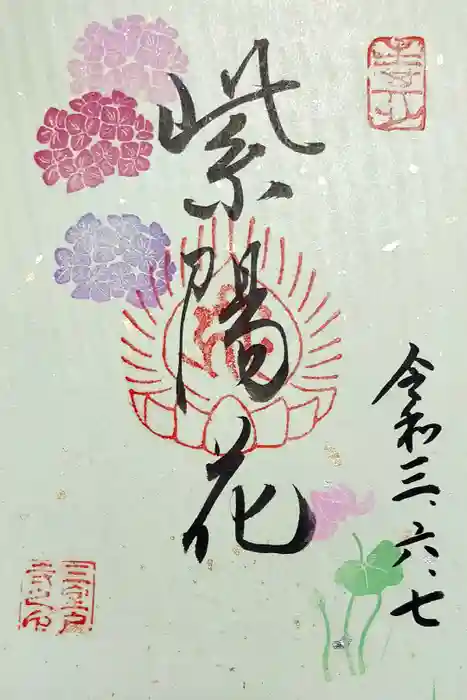 紫陽花
令和三.六.七